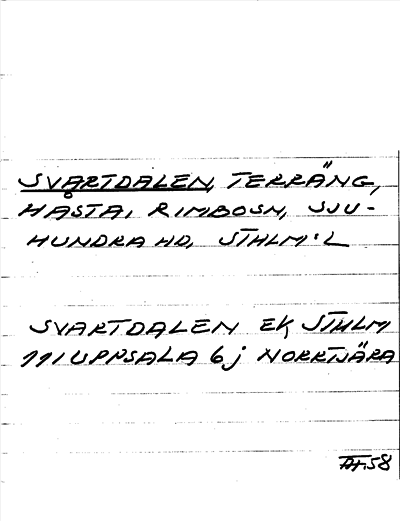 SVARTDALEN, TERRÄNG,
HÅSTA, RIMBO SN, SJU-
HUNDRA HD, STHLM:L
SVARTDALEN EK STHLM
111 UPPSALA 6j NORRTJÄRA
58